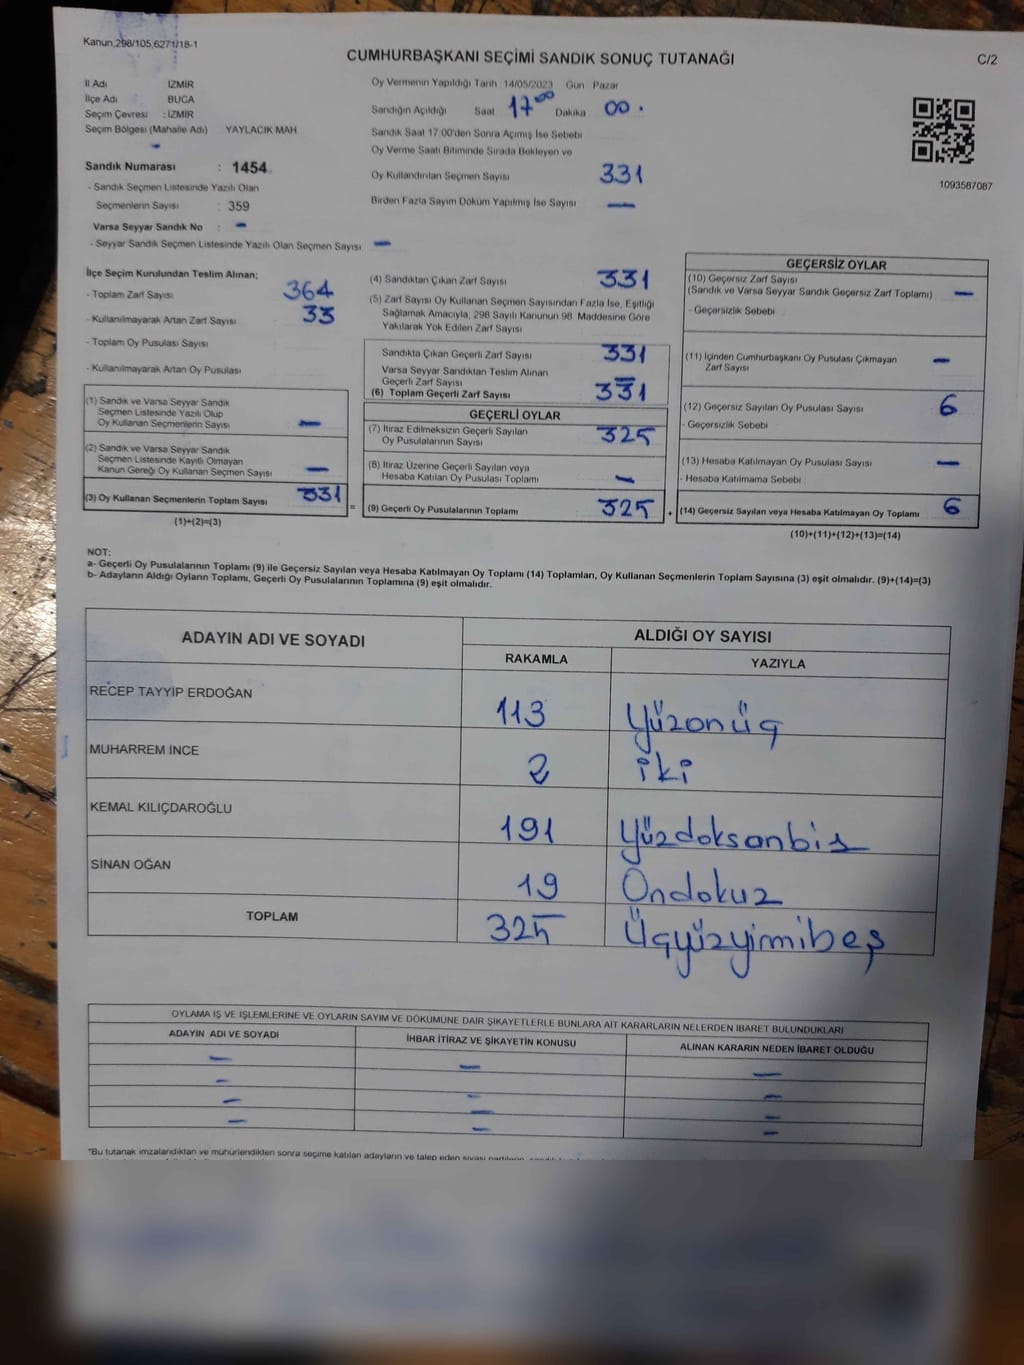 Kanun,298/105,6271/18-1
CUMHURBAŞKANI SEÇİMİ SANDIK SONUÇ TUTANAĞI
C/2
İl Adı İZMİR
İlçe Adı BUCA
Seçim Çevresi : İZMİR
Seçim Bölgesi (Mahalle Adı) YAYLACIK MAH
-
Sandık Numarası : 1454
- Sandık Seçmen Listesinde Yazılı Olan
Seçmenlerin Sayısı : 359
Varsa Seyyar Sandık No : -
- Seyyar Sandık Seçmen Listesinde Yazılı Olan Seçmen Sayısı -
Oy Vermenin Yapıldığı Tarih 14/05/2023 Gün Pazar
Sandığın Açıldığı Saat 17 00 Dakika 00.
Sandık Saat 17:00'den Sonra Açımış İse Sebebi
Oy Verme Saati Bitiminde Sırada Bekleyen ve
Oy Kullandırılan Seçmen Sayısı 331
Birden Fazla Sayım Döküm Yapılmış İse Sayısı -
1093587087
İlçe Seçim Kurulundan Teslim Alınan;
- Toplam Zarf Sayısı 364
- Kullanılmayarak Artan Zarf Sayısı 33
- Toplam Oy Pusulası Sayısı
- Kullanılmayarak Artan Oy Pusulası
(1) Sandık ve Varsa Seyyar Sandık
Seçmen Listesinde Yazılı Olup
Oy Kullanan Seçmenlerin Sayısı -
(2) Sandık ve Varsa Seyyar Sandık
Seçmen Listesinde Kayıtlı Olmayan
Kanun Gereği Oy Kullanan Seçmen Sayısı -
(3) Oy Kullanan Seçmenlerin Toplam Sayısı 331
(1)+(2)=(3)
=
(4) Sandıktan Çıkan Zarf Sayısı 331
(5) Zarf Sayısı Oy Kullanan Seçmen Sayısından Fazla İse, Eşitliği
Sağlamak Amacıyla, 298 Sayılı Kanunun 98. Maddesine Göre
Yakılarak Yok Edilen Zarf Sayısı
Sandıkta Çıkan Geçerli Zarf Sayısı 331
Varsa Seyyar Sandıktan Teslim Alınan
Geçerli Zarf Sayısı -
(6) Toplam Geçerli Zarf Sayısı 331
GEÇERLİ OYLAR
(7) İtiraz Edilmeksizin Geçerli Sayılan
Oy Pusulalarının Sayısı 325
(8) İtiraz Üzerine Geçerli Sayılan veya
Hesaba Katılan Oy Pusulası Toplamı -
(9) Geçerli Oy Pusulalarının Toplamı 325
+
GEÇERSİZ OYLAR
(10) Geçersiz Zarf Sayısı
(Sandık ve Varsa Seyyar Sandık Geçersiz Zarf Toplamı) -
- Geçersizlik Sebebi
(11) İçinden Cumhurbaşkanı Oy Pusulası Çıkmayan
Zarf Sayısı -
(12) Geçersiz Sayılan Oy Pusulası Sayısı 6
- Geçersizlik Sebebi
(13) Hesaba Katılmayan Oy Pusulası Sayısı -
- Hesaba Katılmama Sebebi
(14) Geçersiz Sayılan veya Hesaba Katılmayan Oy Toplamı 6
(10)+(11)+(12)+(13)=(14)
NOT:
a- Geçerli Oy Pusulalarının Toplamı (9) ile Geçersiz Sayılan veya Hesaba Katılmayan Oy Toplamı (14) Toplamları, Oy Kullanan Seçmenlerin Toplam Sayısına (3) eşit olmalıdır. (9)+(14)=(3)
b- Adayların Aldığı Oyların Toplamı, Geçerli Oy Pusulalarının Toplamına (9) eşit olmalıdır.
ADAYIN ADI VE SOYADI ALDIĞI OY SAYISI
RAKAMLA YAZIYLA
RECEP TAYYİP ERDOĞAN 113 Yüzonüç
MUHARREM İNCE 2 iki
KEMAL KILIÇDAROĞLU 191 Yüzdoksanbir
SİNAN OĞAN 19 Ondokuz
TOPLAM 325 Üçyüzyimibeş
OYLAMA İŞ VE İŞLEMLERİNE VE OYLARIN SAYIM VE DÖKÜMÜNE DAİR ŞİKAYETLERLE BUNLARA AİT KARARLARIN NELERDEN İBARET BULUNDUKLARI
ADAYIN ADI VE SOYADI İHBAR İTİRAZ VE ŞİKAYETİN KONUSU ALINAN KARARIN NEDEN İBARET OLDUĞU
- - -
- - -
- - -
- - -
*Bu tutanak imzalandıktan ve mühürlendikten sonra seçime katılan adayların ve talep eden siyasi partilerin